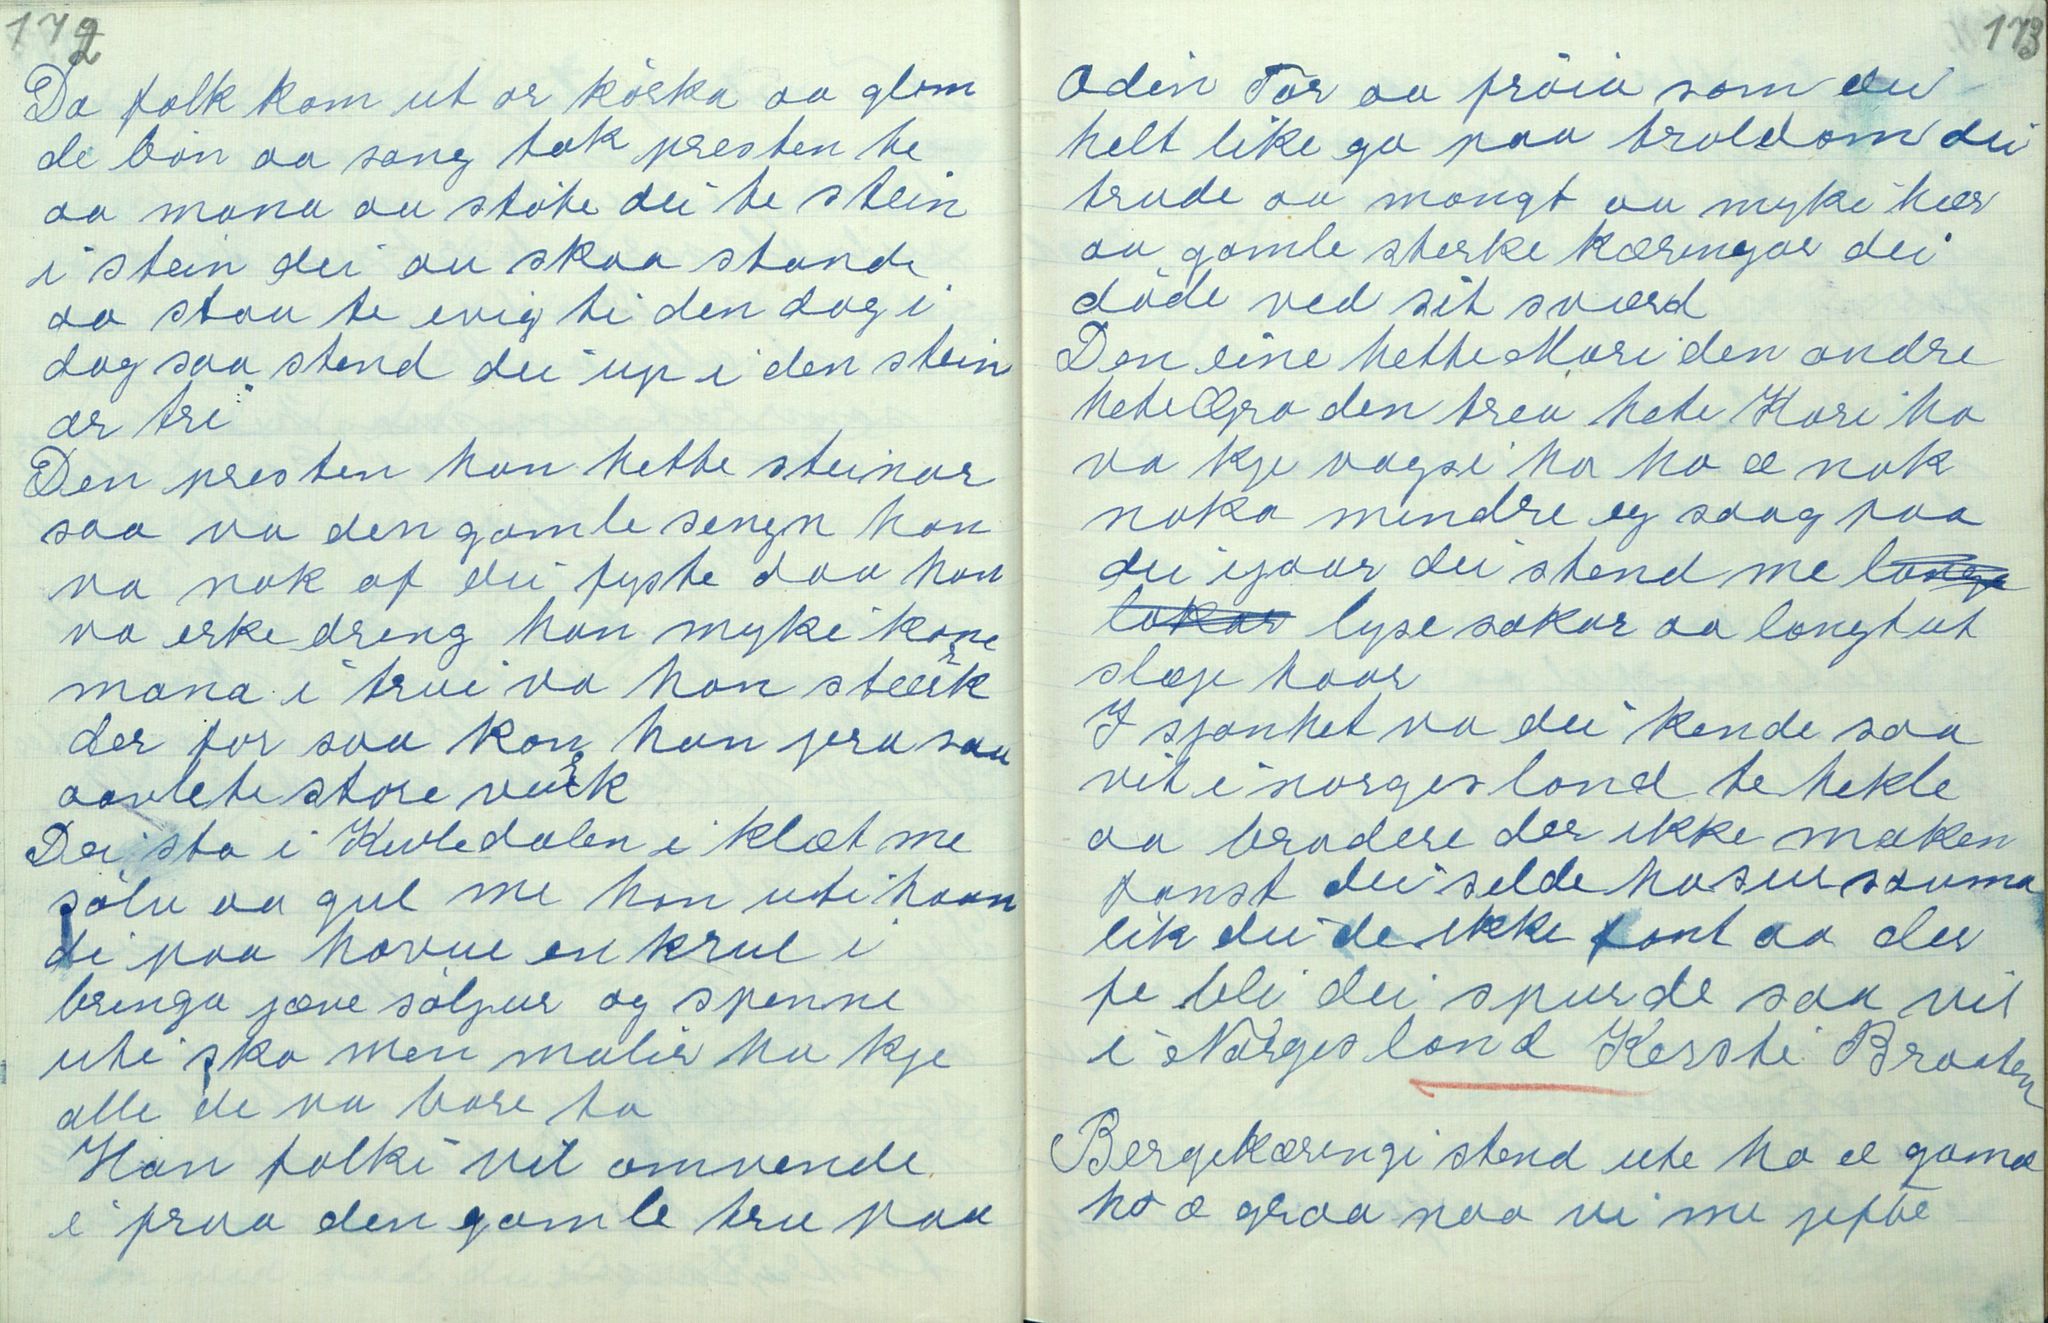 172
Da folk kom ut or kørka aa glom
de bøn aa sang tok presten te
aa mana aa støte dei te stein
i stein dei au skaa stande
aa staa te evig ti den dag i
dag saa stend dei up i den stein
ær tri
Den presten han hette steinar
saa va den gamle sengn han
va nok af dei fyste daa han
va erke dreng han myke kone
mana i trui va han stærk
der for saa kon han jera saa
aavlete store værk
Dei sto i Kivledalen i klæt me
sølv aa gul me hon uti haan
di paa hovue en krul i
bringa jæve søljur og spenne
uti sko men malir ha kje
alle de va bore ta
Han folki vil omvende
i fraa den gamle tru paa
173
Odin Tor aa frøia som dei
helt like go paa troldom dei
trude aa mangt aa myke hær
aa gamle sterke kæringar dei
døde ved sit sværd
Den eine hette Mari den andre
hete Øpra den trea hete Kari ho
va kje vagsi ho ho æ nok
noko mindre eg saag paa
dei igaar dei stend me lange
lokar lyse sokar aa longt ut
sleje haar
I sjønhet va dei kende saa
vit i norges lond te hekle
aa brodere der ikke maken
fanst dei selde hosur sauma
lik dei de ikke fant aa der
fe bli dei spurde saa vit
i Norges lond Kersti Braaten
Bergekæringi stend ute ho æ gamal
ho æ graa naa vi me jefte